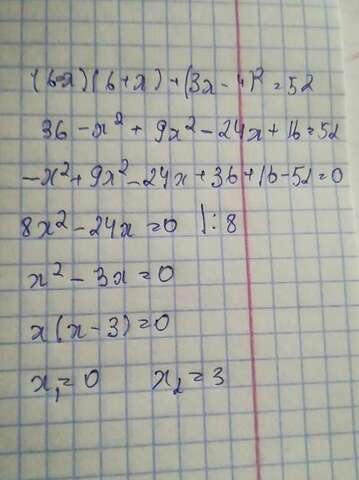 (6-x)(6+x)+(3x-4)²=52
36-x²+9x²-24x+16=52
-x²+9x²-24x+36+16-52=0
8x²-24x=0 |:8
x²-3x=0
x(x-3)=0
x₁=0 x₂=3